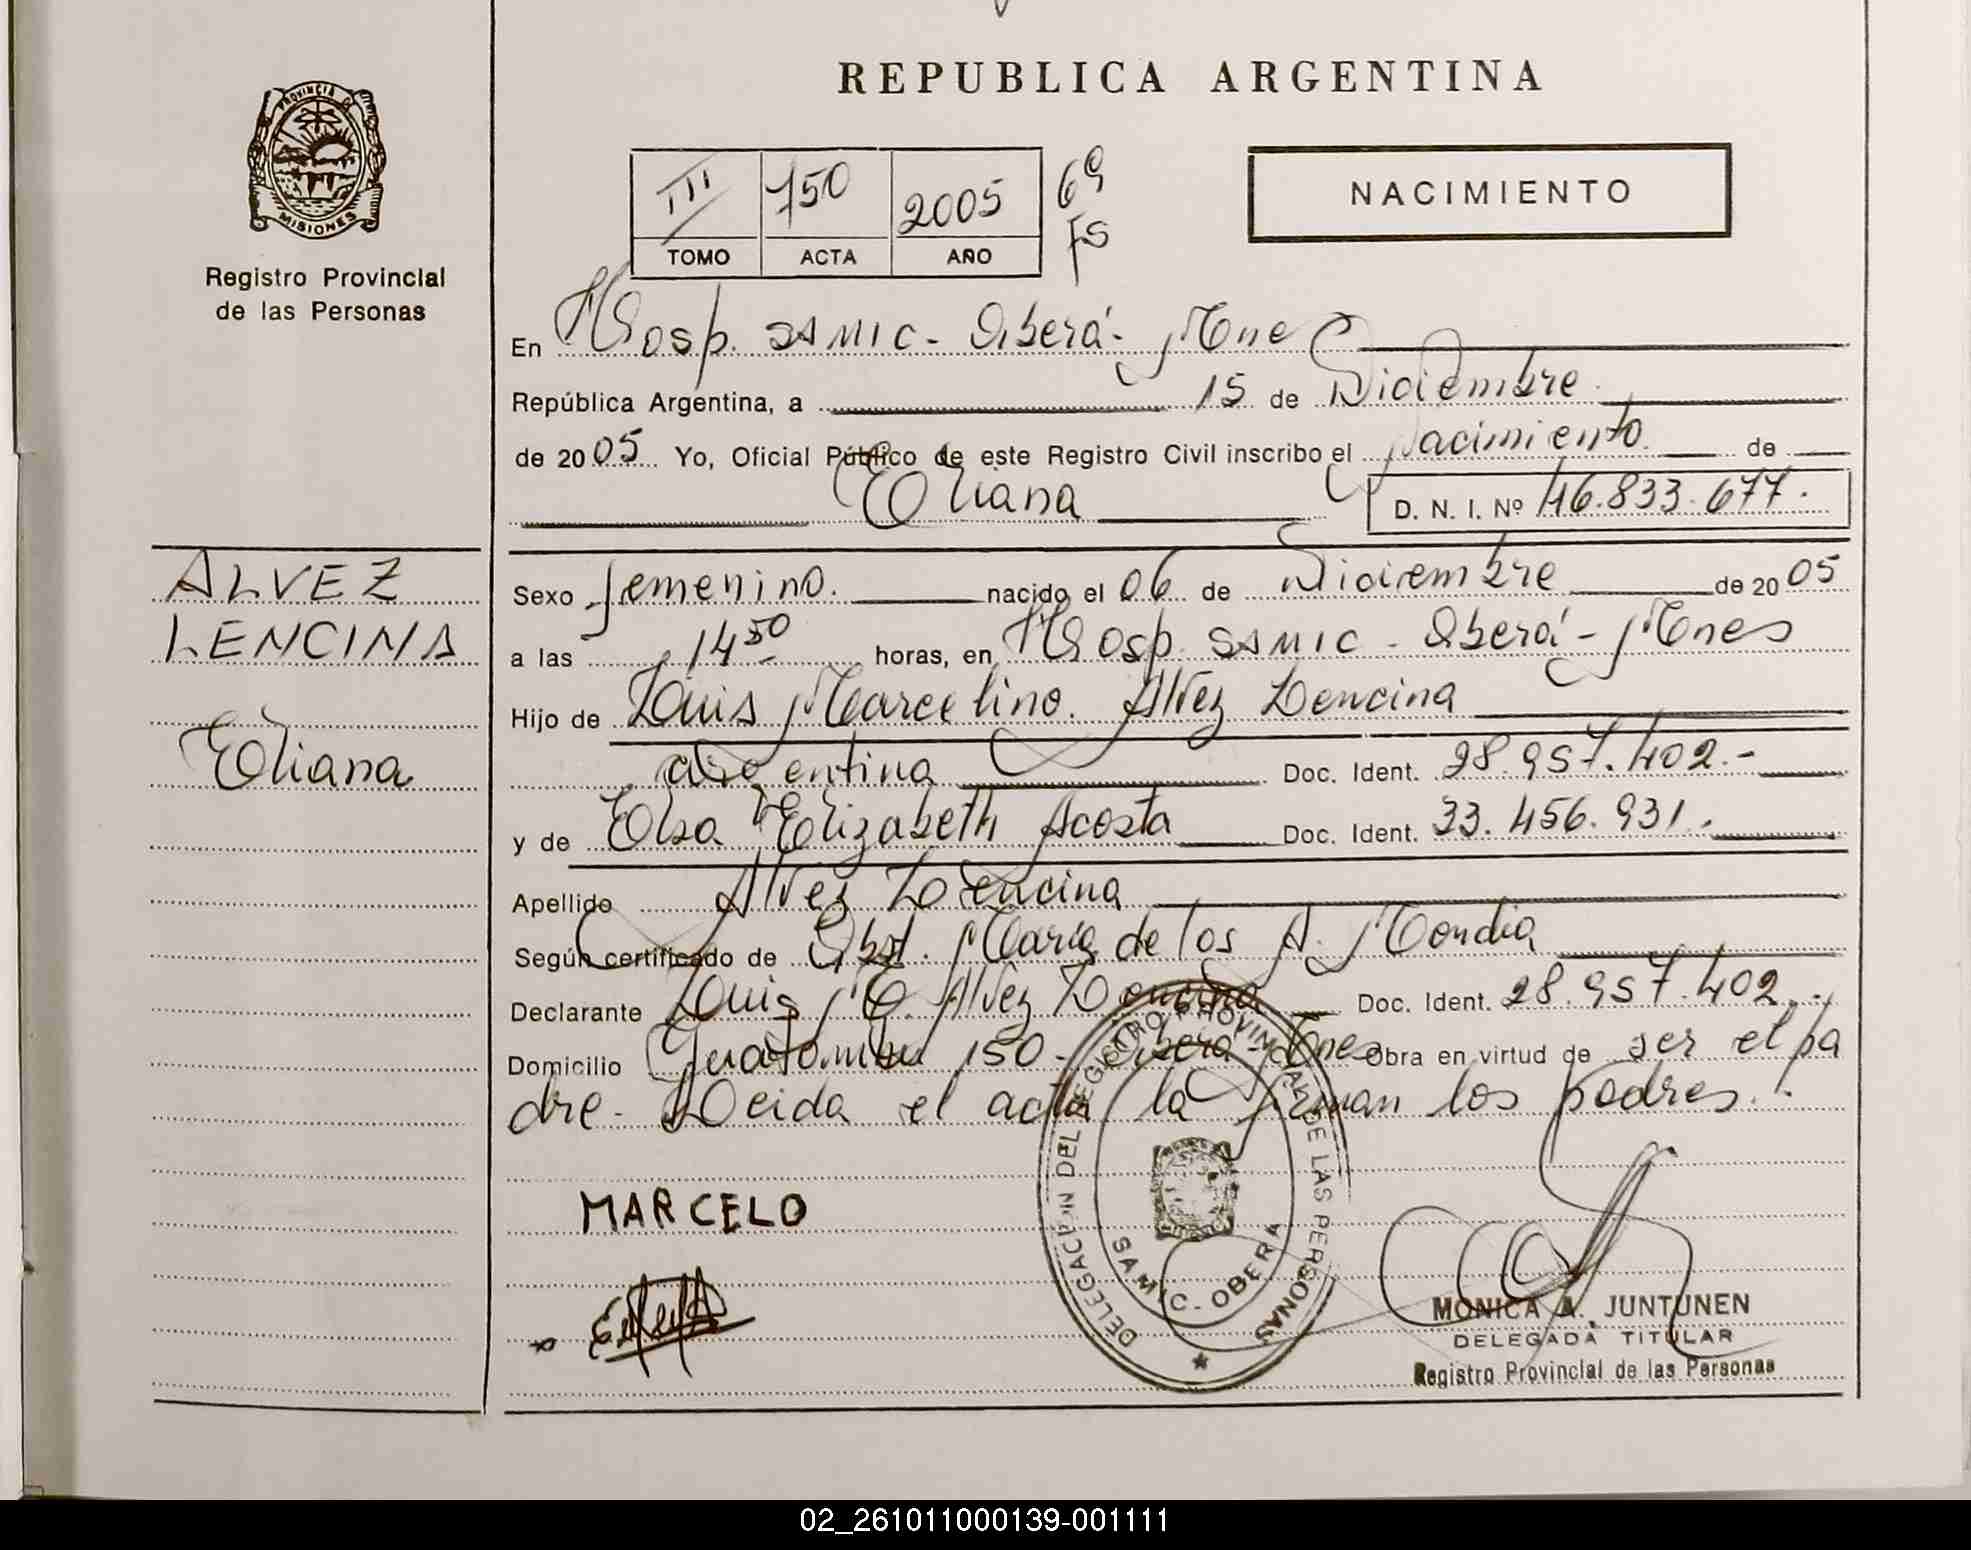 PROVINCIA DE
MISIONES
Registro Provincial
de las Personas
ALVEZ
LENCINA
Eliana
REPUBLICA ARGENTINA
III 750 2005 69
TOMO ACTA AÑO FS
NACIMIENTO
En Hosp. SAMIC - Oberá - Mnes
República Argentina, a 15 de Diciembre
de 2005 Yo, Oficial Público de este Registro Civil inscribo el Nacimiento de
Eliana D. N. I. Nº 46.833.677.
Sexo femenino. nacido el 06 de Diciembre de 2005
a las 14 50 horas, en Hosp. SAMIC - Oberá - Mnes
Hijo de Luis Marcelino Alvez Lencina
argentina Doc. Ident. 28.957.402.-
y de Elsa Elizabeth Acosta Doc. Ident. 33.456.931.
Apellido Alvez Lencina
Según certificado de Obst. María de los A. Mondia
Declarante Luis M. Alvez Lencina Doc. Ident. 28.957.402.-
Domicilio 150 - Oberá - Mnes Obra en virtud de ser el pa
dre - Leida el acta la firman los padres.-
MARCELO
DELEGACION DEL REGISTRO PROVINCIAL DE LAS PERSONAS
SAMIC - OBERA
MONICA A. JUNTUNEN
DELEGADA TITULAR
Registro Provincial de las Personas
02_261011000139-001111